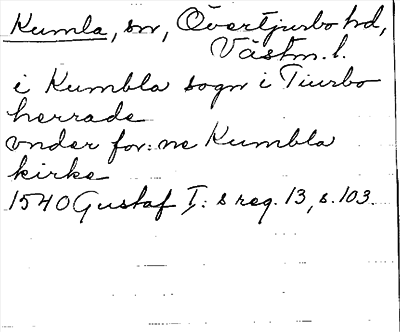 Kumla, sn, Övertjurbo hd,
Västm. l.
i Kumbla sogn i Tiurbo
herrade
vnder for:ne Kumbla
kirke
1540 Gustaf I:s reg. 13, s. 103.